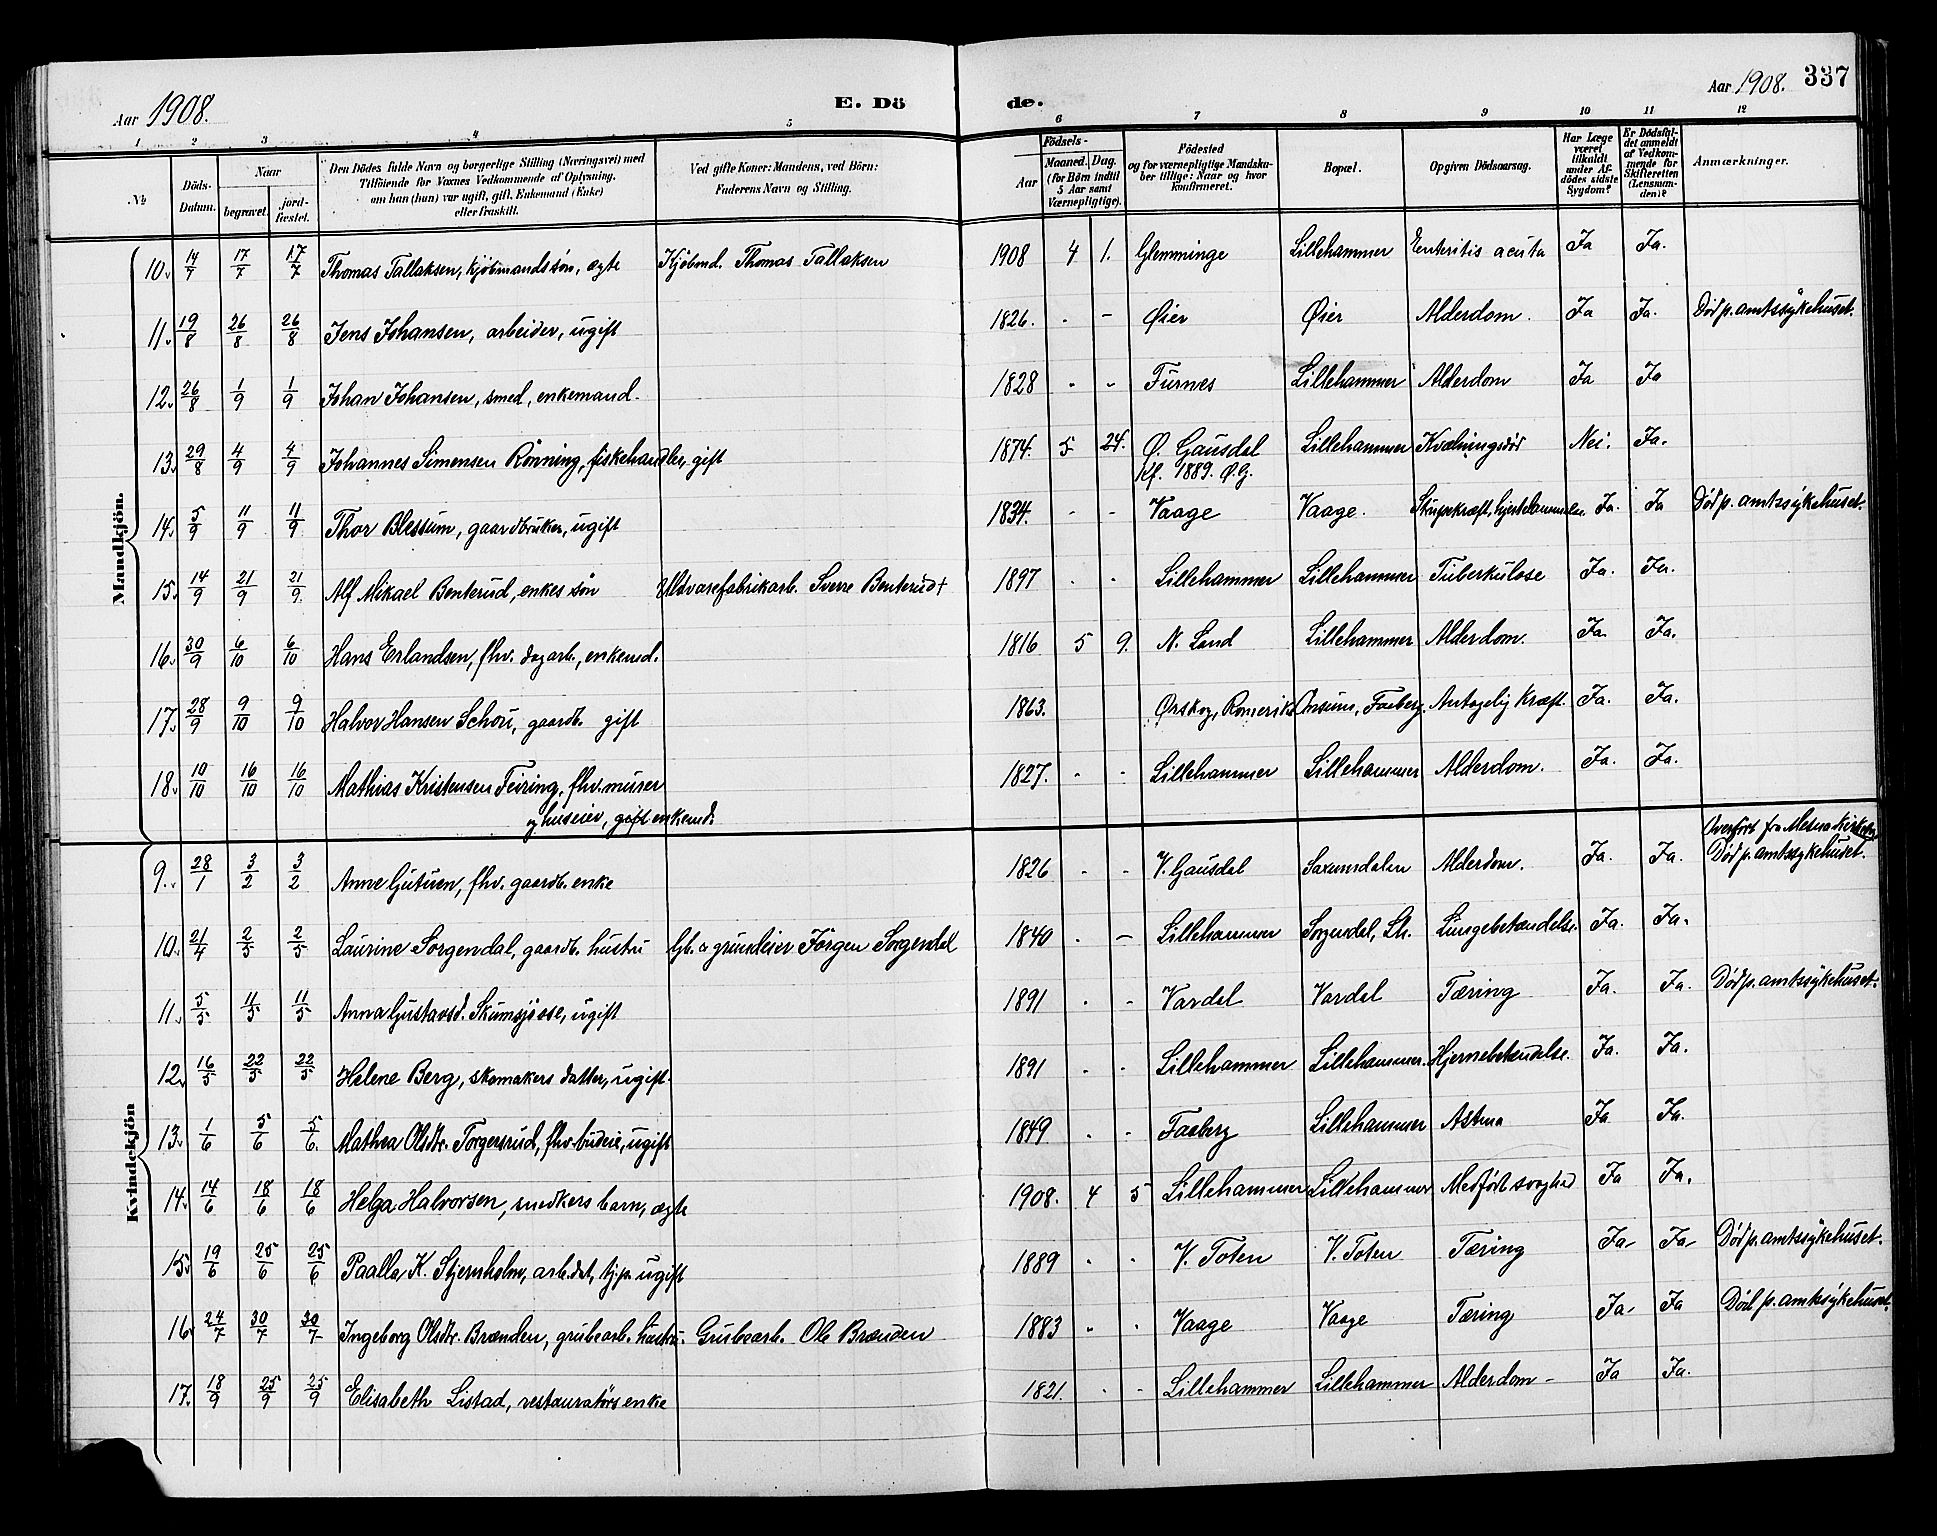 Aar 1908.
E. Dö
de.
Aar 1908.
337
1 2 3 4 5 6 7 8 9 10 11 12
No
Döds-Datum.
Naar
begravet.
jord-fæstet.
Den Dödes fulde Navn og borgerlige Stilling (Næringsvei) med
Tilföiende for Voxnes Vedkommende af Oplysning,
om han (hun) var ugift, gift, Enkemand (Enke)
eller fraskilt.
Ved gifte Koner: Mandens, ved Börn:
Faderens Navn og Stilling.
Födsels-
Aar
Maaned. Dag.
(for Börn indtil
5 Aar samt
Værnepligtige).
Födested
og for værnepligtige Mandska-
ber tillige: Naar og hvor
konfirmeret.
Bopæl.
Opgiven Dödsaarsag.
Har Læge
været
tilkaldt
under Af-
dödes sidste
Sygdom?
Er Dödsfal-
det anmeldt
af Vedkom-
mende for
Skifteretten
(Lensman-
den)?
Anmærkninger.
Mandkjön.
10. 14/7 17/7 17/7 Thomas Tallaksen, kjöbmandssön, ægte Kjöbmd. Thomas Tallaksen 1908 4 1. Glemminge Lillehammer Enteritis acuta Ja Ja.
11. 19/8 26/8 26/8 Jens Johansen, arbeider, ugift 1826. - - Øier Øier Alderdom. Ja Ja. Död p. amtssykehuset.
12. 26/8 1/9 1/9 Johan Johansen, smed, enkemand. 1828 - - Furnes Lillehammer Alderdom Ja Ja
13. 29/8 4/9 4/9 Johannes Simensen Rönning, fiskehandler, gift 1874. 5 24. Ø. Gausdal Lillehammer Kvælningsdöd Nei. Ja.
Kf. 1889. Ø.G.
14. 5/9 11/9 11/9 Thor Blessum, gaardbruker, ugift 1834. - - Vaage Vaage. Ja. Ja Död p. amtssykehuset.
15. 14/9 21/9 21/9 Alf Mikael Benterud, enkes sön Uldvarefabrikarb. Sverre Benterud † 1897 - - Lillehammer Lillehammer Tuberkulose Ja. Ja.
16. 30/9 6/10 6/10 Hans Erlandsen, fhv. dagarb., enkemd. 1816 5 9. N. Land Lillehammer Alderdom. Ja. Ja.
17. 28/9 9/10 9/10 Halvor Hansen Schou, gaardb. gift 1863. Ørskog, Romerike Onsum, Faaberg. Antagelig kræft. Ja. Ja.
18. 10/10 16/10 16/10 Mathias Kristensen Feiring, fhv. murer 1827. - - Lillehammer Lillehammer Alderdom. Ja. Ja.
og huseier, gift enkemd.
Kvindekjön
Overfört fra Mesna
9. 28/1 3/2 3/2 Anne Gutuen, fhv. gaardb. enke 1826 - - V. Gausdal Saxumdalen Alderdom. Ja. Ja. Död p. amtssykehuset.
10. 21/4 2/5 2/5 Laurine Sorgendal, gaardb. hustru Gb. o grundeier Jörgen Sorgendal 1840 - - Lillehammer Sorgendal, Lh. Lungebetændelse. Ja. Ja.
11. 5/5 11/5 11/5 Anna Gustavsd. Skumsjöose, ugift 1891 - - Vardal Vardal Tæring Ja. Ja. Död p. amtssykehuset.
12. 16/5 22/5 22/5 Helene Berg, skomakers datter, ugift. 1891 - - Lillehammer Lillehammer. Hjernebetændelse. Ja. Ja.
13. 1/6 5/6 5/6. Mathea Olsdtr. Torgersrud, fhv. budeie, ugift 1849 - - Faaberg Lillehammer Astma Ja Ja.
14. 14/6 18/6 18/6 Helga Halvorsen, snedkers barn, ægte 1908. 4 5 Lillehammer Lillehammer Medfödt svaghed Ja Ja.
15. 19/6 25/6 25/6 Paalla K. Stjernholm, arb.dat, tjp. ugift 1889 - - V. Toten V. Toten Tæring Ja- Ja- Död p. amtssykehuset.
16. 24/7 30/7 30/7 Ingeborg Olsdtr. Brænden, grubearb. hustru. Grubearb. Ole Brænden 1883 - - Vaage Vaage Tæring Ja- Ja Död p. amtssykehuset.
17. 18/9 25/9 25/9 Elisabeth Listad, restauratörs enke 1821. - - Lillehammer Lillehammer Alderdom - Ja Ja.